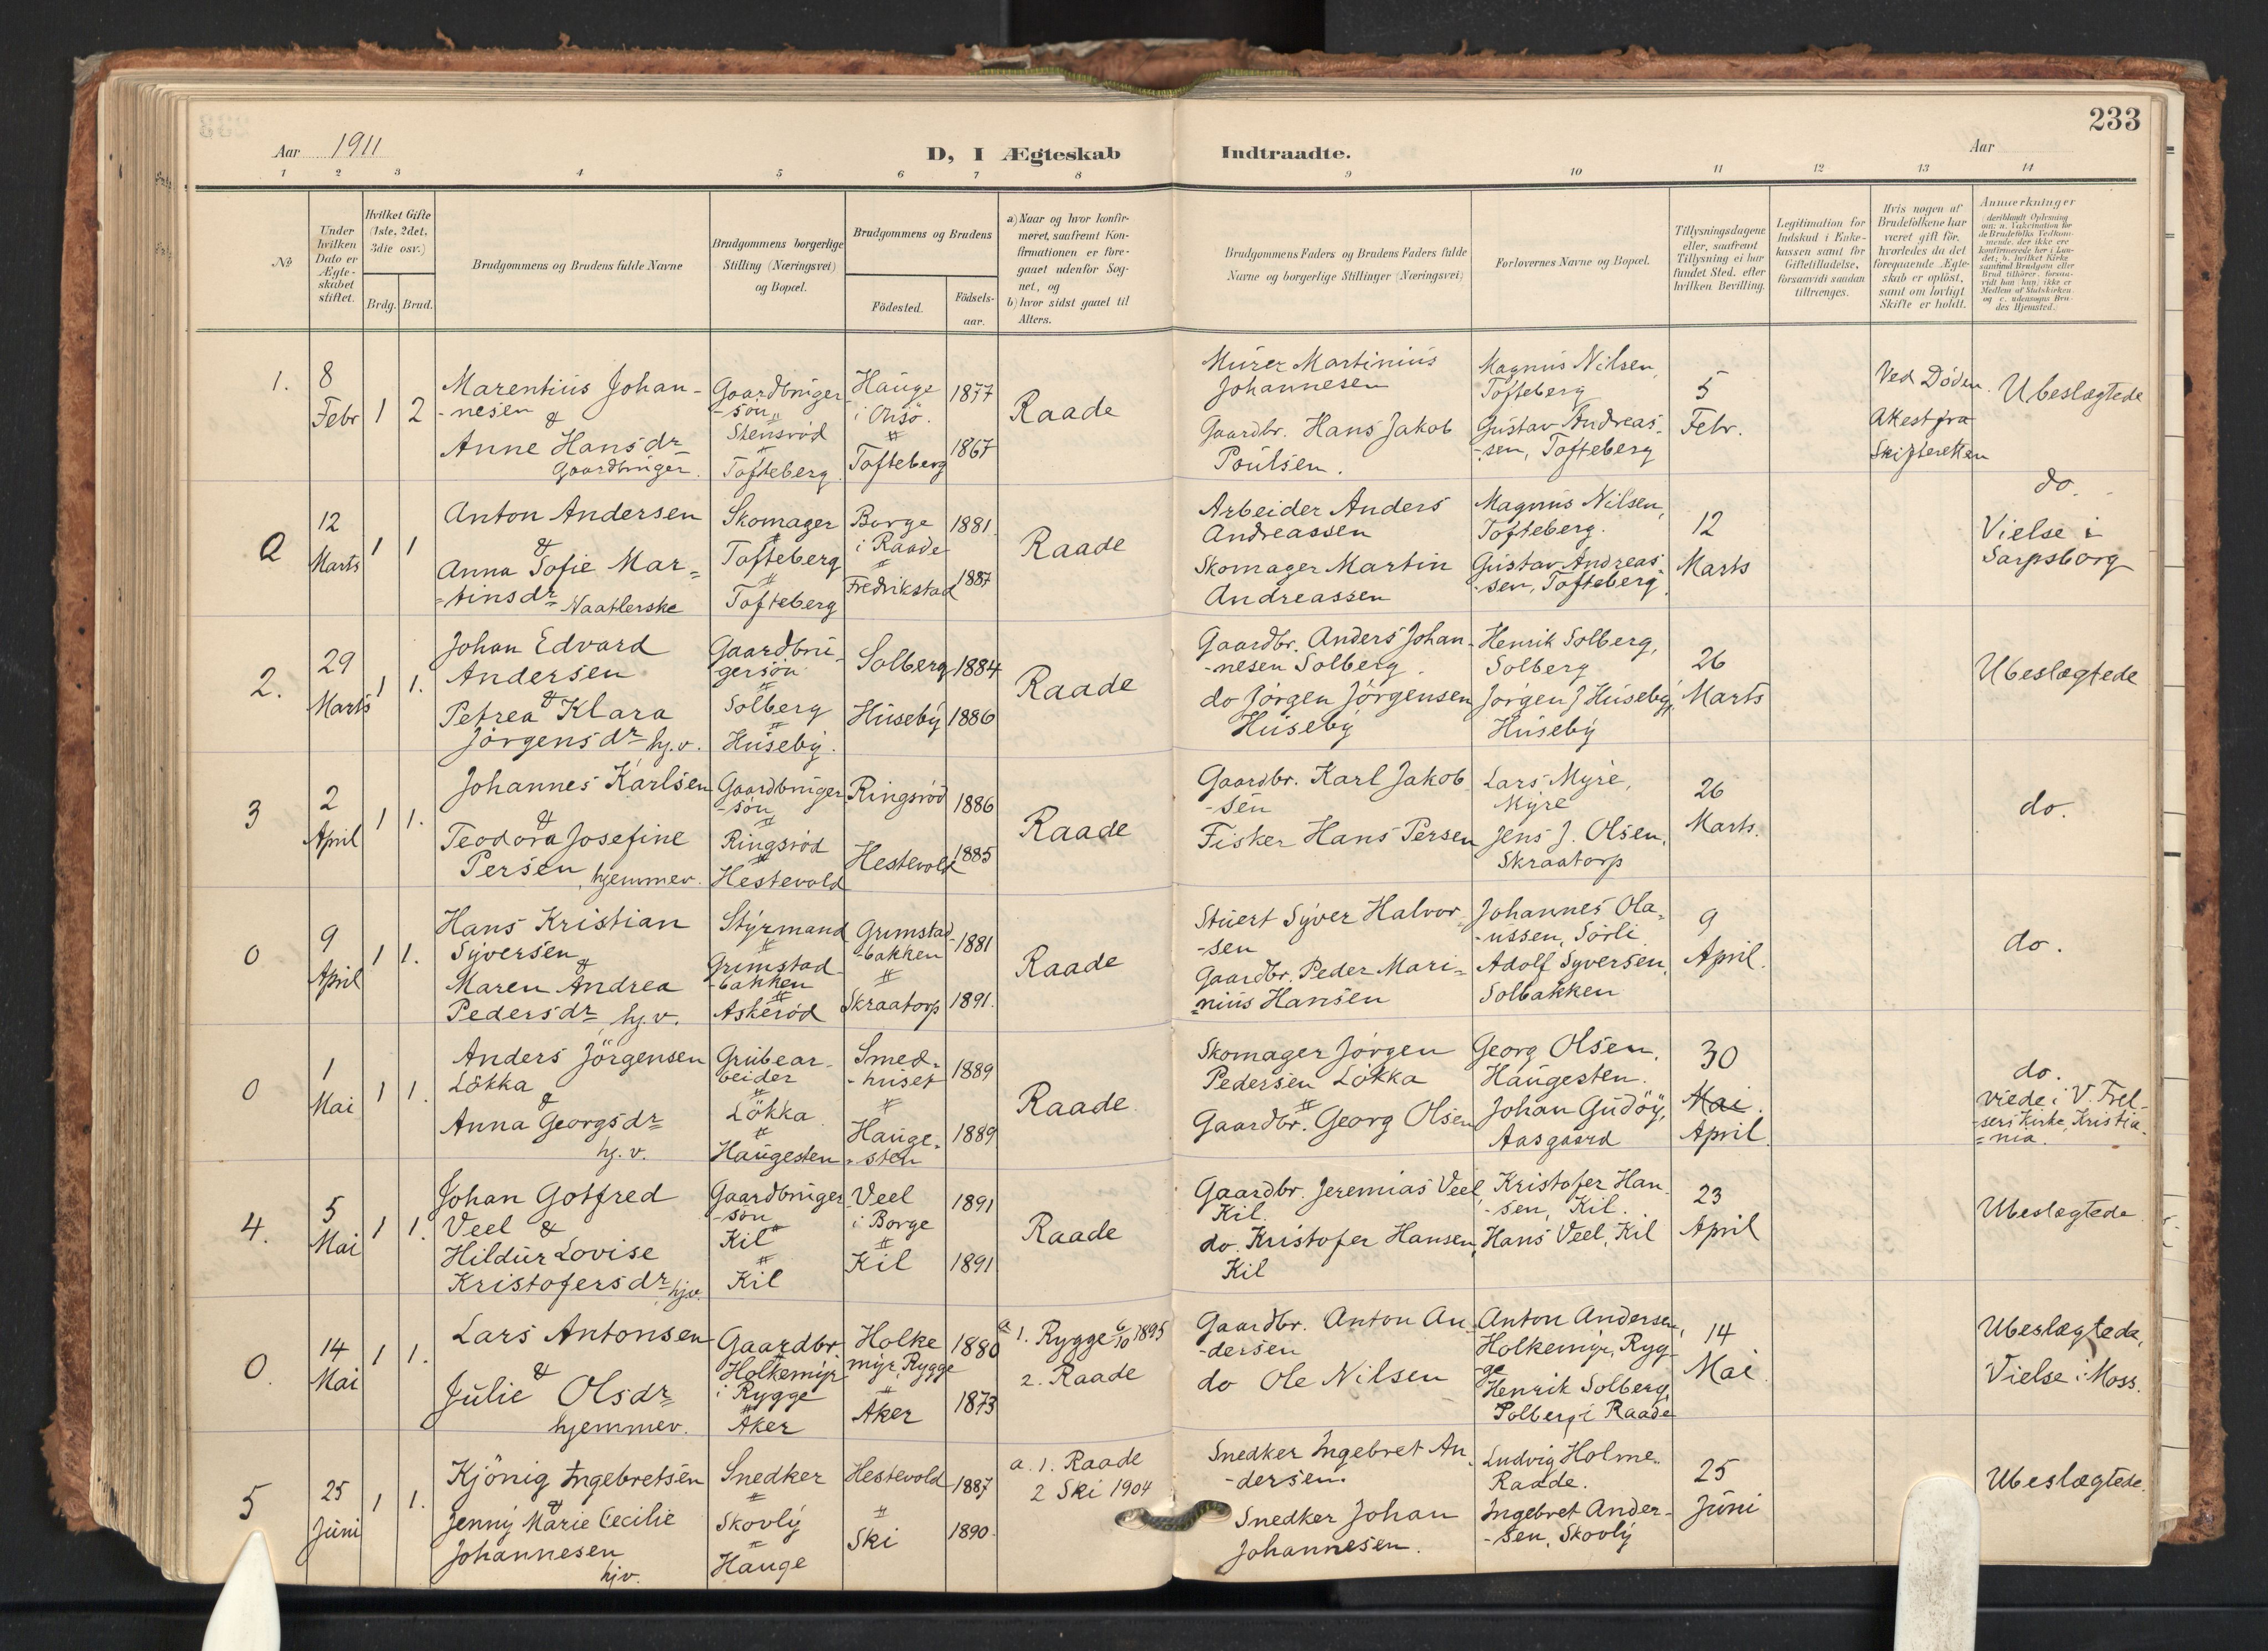 233
Aar 1911
D, I Ægteskab Indtraadte.
Aar
1 2 3 4 5 6 7 8 9 10 11 12 13 14
No
Under hvilken Dato er Ægteskabet stiftet.
Hvilket Gifte (1ste, 2det, 3die osv.)
Brdg. Brud.
Brudgommens og Brudens fulde Navne
Brudgommens borgerlige Stilling (Næringsvei) og Bopæl.
Brudgommens og Brudens
Födested. Födsels-aar.
a) Naar og hvor konfirmeret, saafremt Konfirmationen er foregaaet udenfor Sognet, og
b) hvor sidst gaaet til Alters.
Brudgommens Faders og Brudens Faders fulde Navne og borgerlige Stillinger (Næringsvei)
Forlovernes Navne og Bopæl.
Tillysningsdagene eller, saafremt Tillysning ei har fundet Sted, efter hvilken Bevilling.
Legitimation for Indskud i Enkekassen samt for Giftetilladelse, forsaavidt saadan tiltrænges.
Hvis nogen af Brudefolkene har været gift för, hvorledes da det foregaaende Ægteskab er oplöst, samt om lovligt Skifte er holdt.
Anmærkninger (deriblandt Oplysning om: a. Vakcination for de Brudefolks Vedkommende, der ikke ere konfirmerede her i Landet; b. hvilket Kirkesamfund Brudgom eller Brud tilhörer, forsaavidt han (hun) ikke er Medlem af Statskirken og c. udensogns Brudes Hjemsted.
1. 8 Febr 1 2
Marentius Johan-
-nesen
&
Anne Hansdr
Gaardbruger.
Gaardbruger
-søn
Stensrød
Tofteberg.
Hauge
i Onsø.
Tofteberg
1877
1867
Raade
Murer Martinius
Johannesen
Gaardbr. Hans Jakob
Poulsen.
Magnus Nilsen,
Tofteberg
Gustav Andreas-
-sen, Tofteberg
5
Febr.
Ved Døden.
Attest fra
Skifteretten
Ubeslægtede
0 12 Marts 1 1
Anton Andersen
&
Anna Sofie Mar=
=tinsdr Naatlerske
Skomager
Tofteberg
Tofteberg
Borge
i Raade
Fredrikstad
1881
1887
Raade
Arbeider Anders
Andreassen
Skomager Martin
Andreassen
Magnus Nilsen,
Tofteberg.
Gustav Andreas-
-sen, Tofteberg
12
Marts
do.
Vielse i
Sarpsborg
2. 29 Marts 1 1.
Johan Edvard
Andersen
&
Petrea Klara
Jørgensdr hj.v.
Gaardbru-
gersøn
Solberg
Huseby.
Solberg
Huseby
1884
1886
Raade
Gaardbr. Anders Johan-
-nesen Solberg
do Jørgen Jørgensen
Huseby
Henrik Solberg,
Solberg
Jørgen J Huseby,
Huseby
26
Marts
Ubeslægtede
3 2 April 1 1.
Johannes Karlsen
&
Teodora Josefine
Persen, hjemmev.
Gaardbruger
-søn
Ringsrød
Hestevold
Ringsrød
Hestevold
1886
1885
Raade
Gaardbr. Karl Jakob
-sen
Fisker Hans Persen
Lars Myre,
Myre
Jens J. Olsen,
Skraatorp
26
Marts.
do.
0 9 April 1 1.
Hans Kristian
Syversen
&
Maren Andrea
Pedersdr, hj.v.
Styrmand
Grimstad
-bakken
Askerød
Grimstad
-bakken
Skraatorp
1881
1891.
Raade
Stuert Syver Halvor-
-sen
Gaardbr. Peder Mari=
=nius Hansen
Johannes Ola-
-ussen, Sørli
Adolf Syversen,
Solbakken
9
April.
do.
0 1 Mai 1 1.
Anders Jørgensen
Løkka
&
Anna Georgsdr
hj.v.
Grubear-
beider
Løkka
Haugesten
Smed-
-huset
Hauge-
-sten
1889
1889
Raade.
Skomager Jørgen
Pedersen Løkka
Gaardbr. Georg Olsen
Georg Olsen,
Haugesten.
Johan Gudøy,
Aasgaard
30
Mai.
April.
do.
Viede i V. Frel-
-sers Kirke, Kristia-
=nia.
4. 5 Mai 1 1.
Johan Gotfred
Veel &
Hildur Lovise
Kristofersdr, hjv.
Gaardbruger
-søn
Kil
Kil
Veel
i Borge
Kil
1891
1891
Raade
Gaardbr. Jeremias Veel,
Kil.
do. Kristofer Hansen,
Kil
Kristofer Han-
-sen, Kil.
Hans Veel, Kil
23
April
Ubeslægtede
0. 14 Mai 1 1.
Lars Antonsen
&
Julie Olsdr
hjemmev.
Gaardbr.
Holkemyr
i Rygge
Aker
Holke
myr, Rygge
Aker
1880
1873
a 1. Rygge 6/10 1895
2. Raade
Gaardbr. Anton An-
-dersen
do Ole Nilsen
Anton Andersen,
Holkemyr, Ryg-
-ge
Henrik Solberg,
Solberg i Raade
14
Mai.
Ubeslægtede,
Vielse i Moss.
5 25 Juni 1 1.
Kjønig Ingebretsen
&
Jenny Marie Cecilie
Johannesen
hjv.
Snedker
Skovly
Hauge
Hestevold
Ski
1887
1890.
a. 1. Raade
2 Ski 1904
Snedker Ingebret An-
-dersen.
Snedker Johan
Johannesen.
Ludvig Holme.
Raade.
Ingebret Ander-
-sen, Skovly
25
Juni
Ubeslægtede.